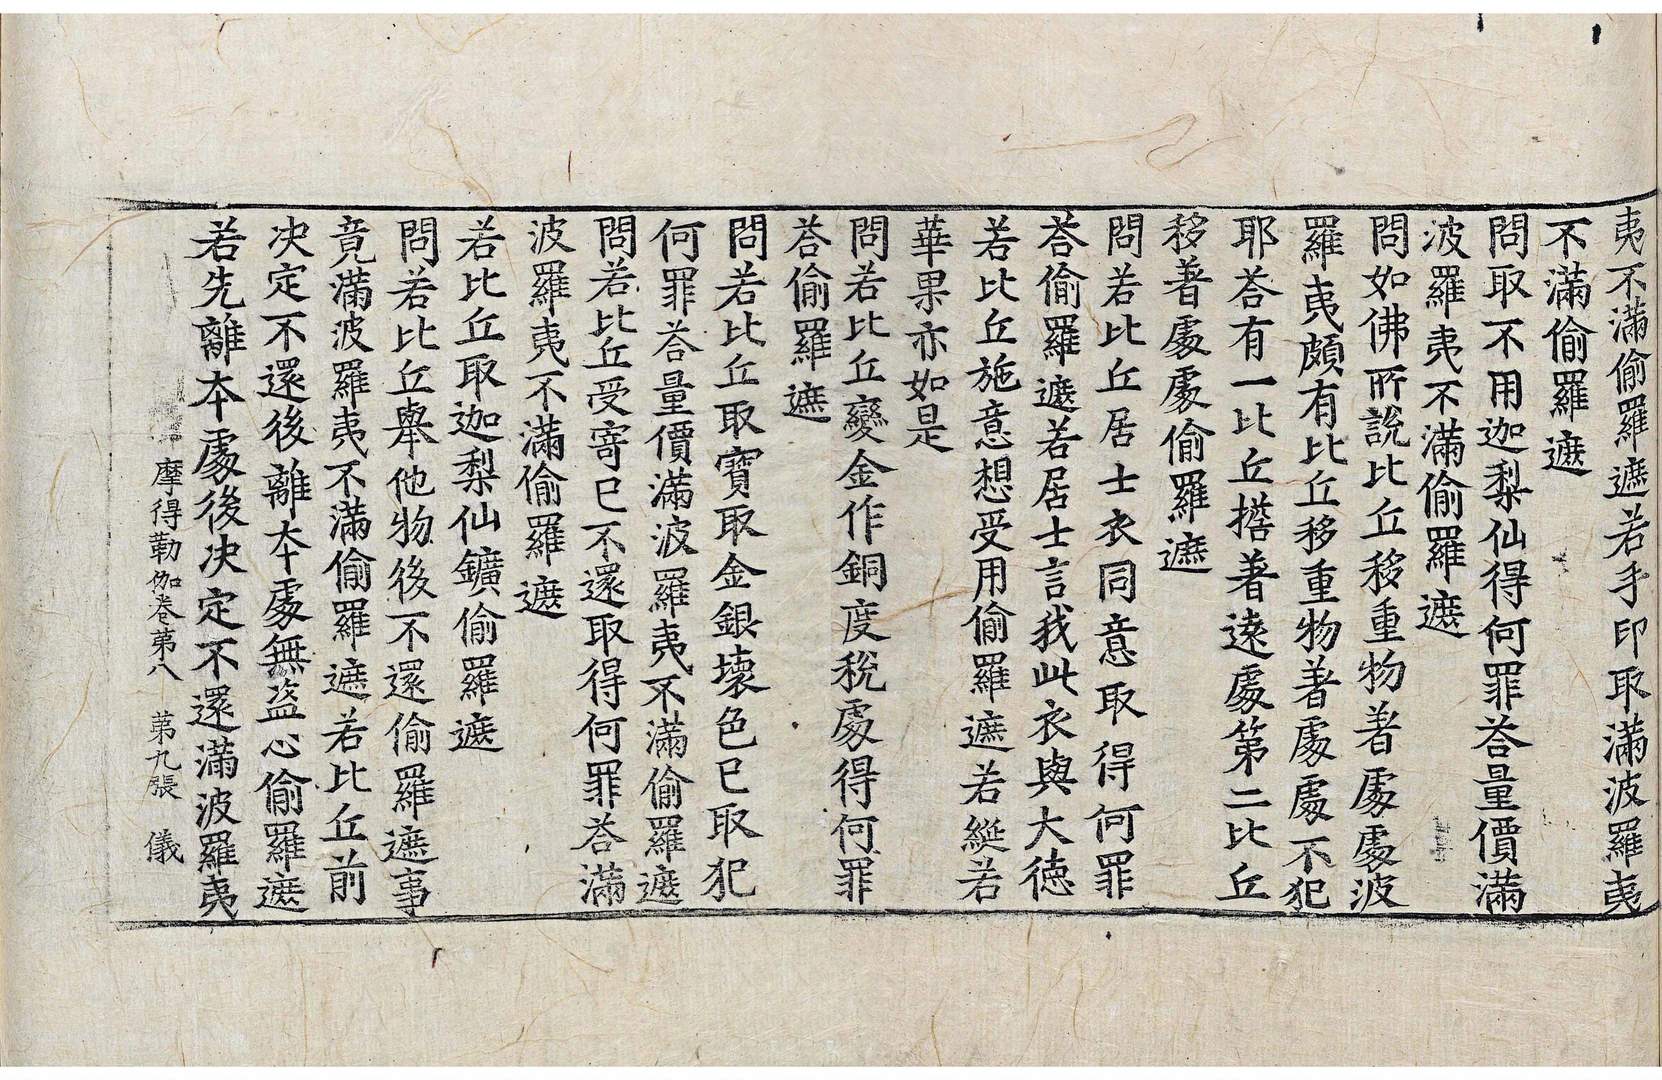 夷不滿偷羅遮若手印取滿波羅夷
不滿偷羅遮
問取不用迦梨仙得何罪荅量價滿
波羅夷不滿偷羅遮
問如佛所說比丘移重物著處處波
羅夷頗有比丘移重物著處處不犯
耶荅有一比丘撘著遠處第二比丘
移著處處偷羅遮
問若比丘居士衣同意取得何罪
荅偷羅遮若居士言我此衣與大德
若比丘施意想受用偷羅遮若綖若
華果亦如是
問若比丘變金作銅度稅處得何罪
荅偷羅遮
問若比丘取寶取金銀壞色已取犯
何罪荅量價滿波羅夷不滿偷羅遮
問若比丘受寄已不還取得何罪荅滿
波羅夷不滿偷羅遮
若比丘取迦梨仙鑛偷羅遮
問若比丘舉他物後不還偷羅遮事
竟滿波羅夷不滿偷羅遮若比丘前
决定不還後離本處無盜心偷羅遮
若先離本處後决定不還滿波羅夷
摩得勒伽卷第八 第九張 儀